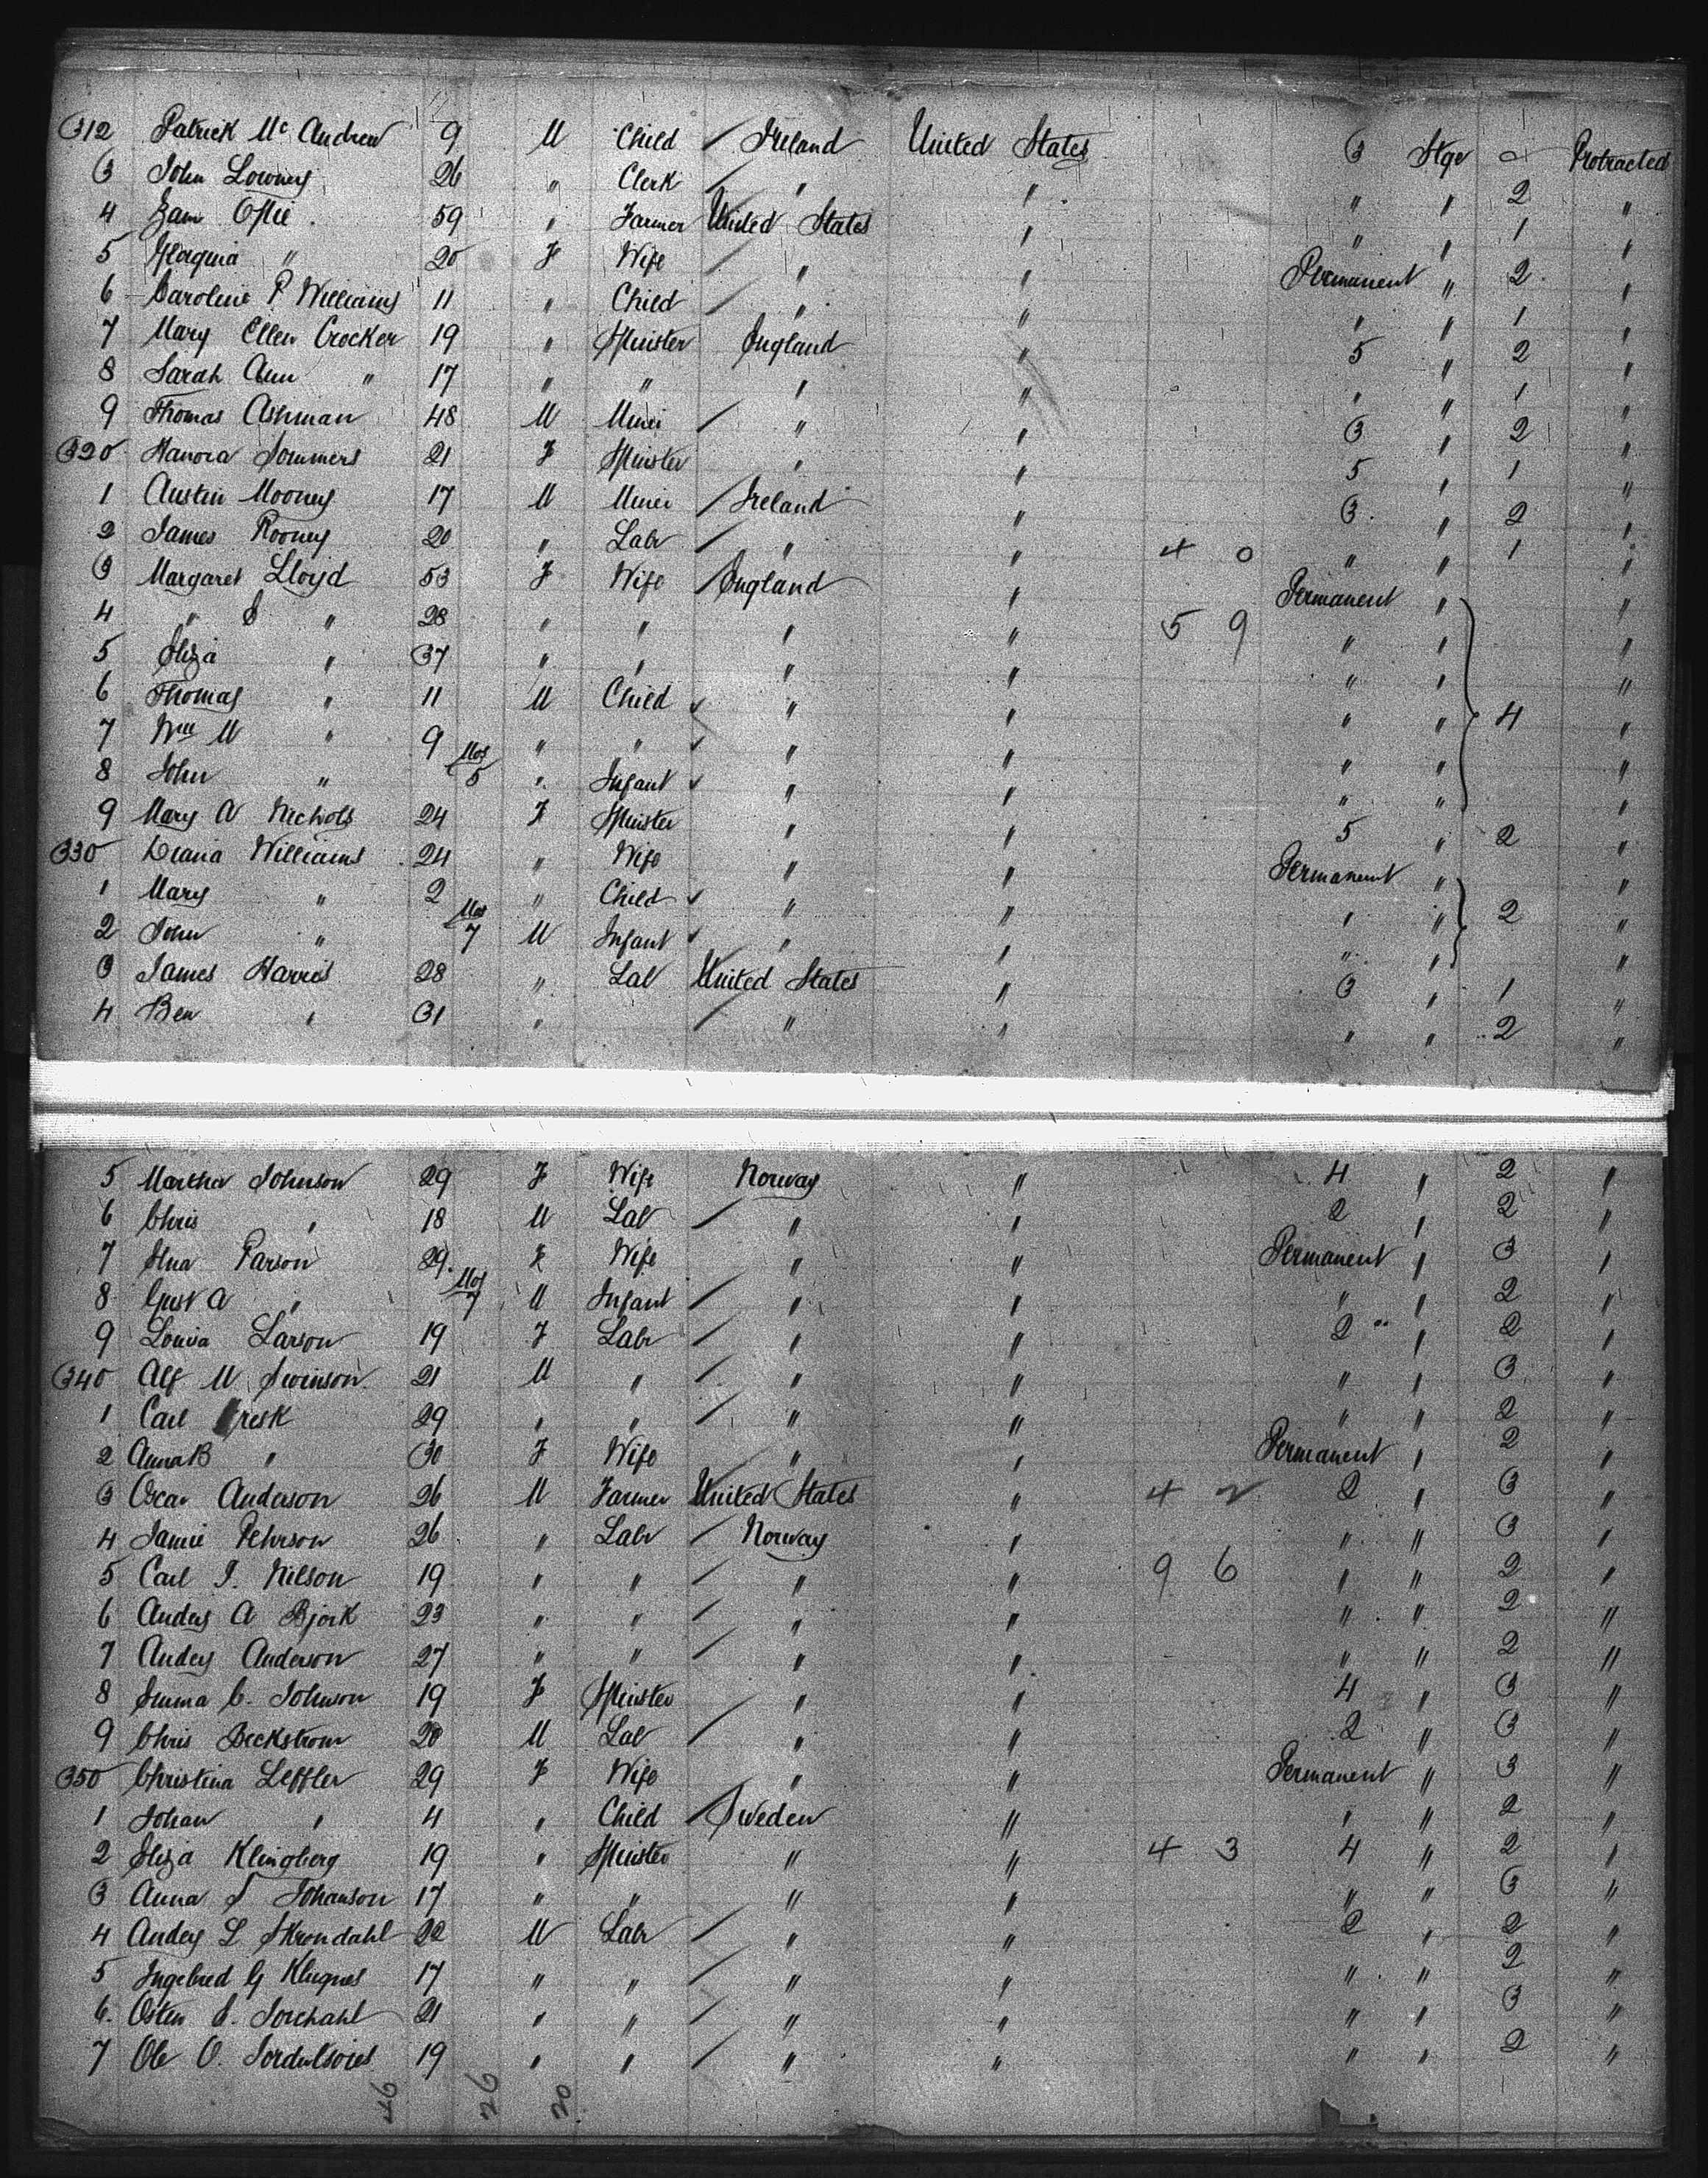 312 Patrick Mc Andrew 9 M Child / Ireland United States 3 Stge Protracted
3 John Lowney 26 " Clerk / " " " " 2 "
4 59 " Farmer United States " " " 1 "
5 Georgina " 20 F Wife / " " Permanent " 2 "
6 Caroline P Williams 11 " Child / " " " " 1 "
7 Mary Ellen Crocker 19 " Spinster England " 5 " 2 "
8 Sarah Ann " 17 " " " " " " 1 "
9 Thomas Ashman 48 M Miner / " " 3 " 2 "
320 Hanora Sommers 21 F Spinster " " 5 " 1 "
1 Austin Mooney 17 M Miner / Ireland " 3 " 2 "
2 James Rooney 20 " Labr / " " 4 0 " " 1 "
3 Margaret Lloyd 53 F Wife / England " Permanent " "
4 " S " 28 " " " " 5 9 " " "
5 Eliza " 37 " " " " " " "
6 Thomas " 11 M Child ✓ " " " " 4 "
7 Wm M " 9 " " ✓ " " " " "
8 John " Mos 5 " Infant ✓ " " " " "
9 Mary A Nichols 24 F Spinster " " 5 " 2 "
330 Diana Williams 24 " Wife " " Permanent " "
1 Mary " 2 " Child ✓ " " " " 2 "
2 John " Mos 7 M Infant ✓ " " " " "
3 James Harris 28 " Lab United States " 3 " 1 "
4 Ben " 31 " / " " " " 2 "
5 Martha Johnson 29 F Wife Norway " 4 " 2 "
6 Chris " 18 M Lab / " " 2 " 2 "
7 Parson 29 F Wife " " Permanent " 3 "
8 Gust A " Mos 7 M Infant / " " " " 2 "
9 Louisa Larson 19 F Labr / " " 2 " 2 "
340 Alf M Swinson 21 M " / " " " " 3 "
1 Carl 29 " " / " " " " 2 "
2 Anna B " 30 F Wife / " " Permanent " 2 "
3 Oscar Anderson 26 M Farmer United States " 4 2 2 " 3 "
4 Pehrson 26 " Labr / Norway " " " 3 "
5 Carl J. Nilson 19 " " / " " 9 6 " " 2 "
6 Anders A Bjork 23 " " / " " " " 2 "
7 Anders Anderson 27 " " / " " " " 2 "
8 Emma C. Johnson 19 F Spinster " " 4 " 3 "
9 Chris Beckstrom 20 M Lab / " " 2 " 3 "
350 Christina Leffler 29 F Wife " " Permanent " 3 "
1 Johan " 4 " Child / Sweden " " " 2 "
2 Eliza Klingberg 19 " Spinster " " 4 3 4 " 2 "
3 Anna S Johanson 17 " " " " " " 3 "
4 Anders L Skrondahl 22 M Labr / " " 2 " 2 "
5 17 " " / " " " " 2 "
6 Osten S. 21 " " / " " " " 3 "
7 Ole O. 19 " " / " " " " 2 "
46 26 20